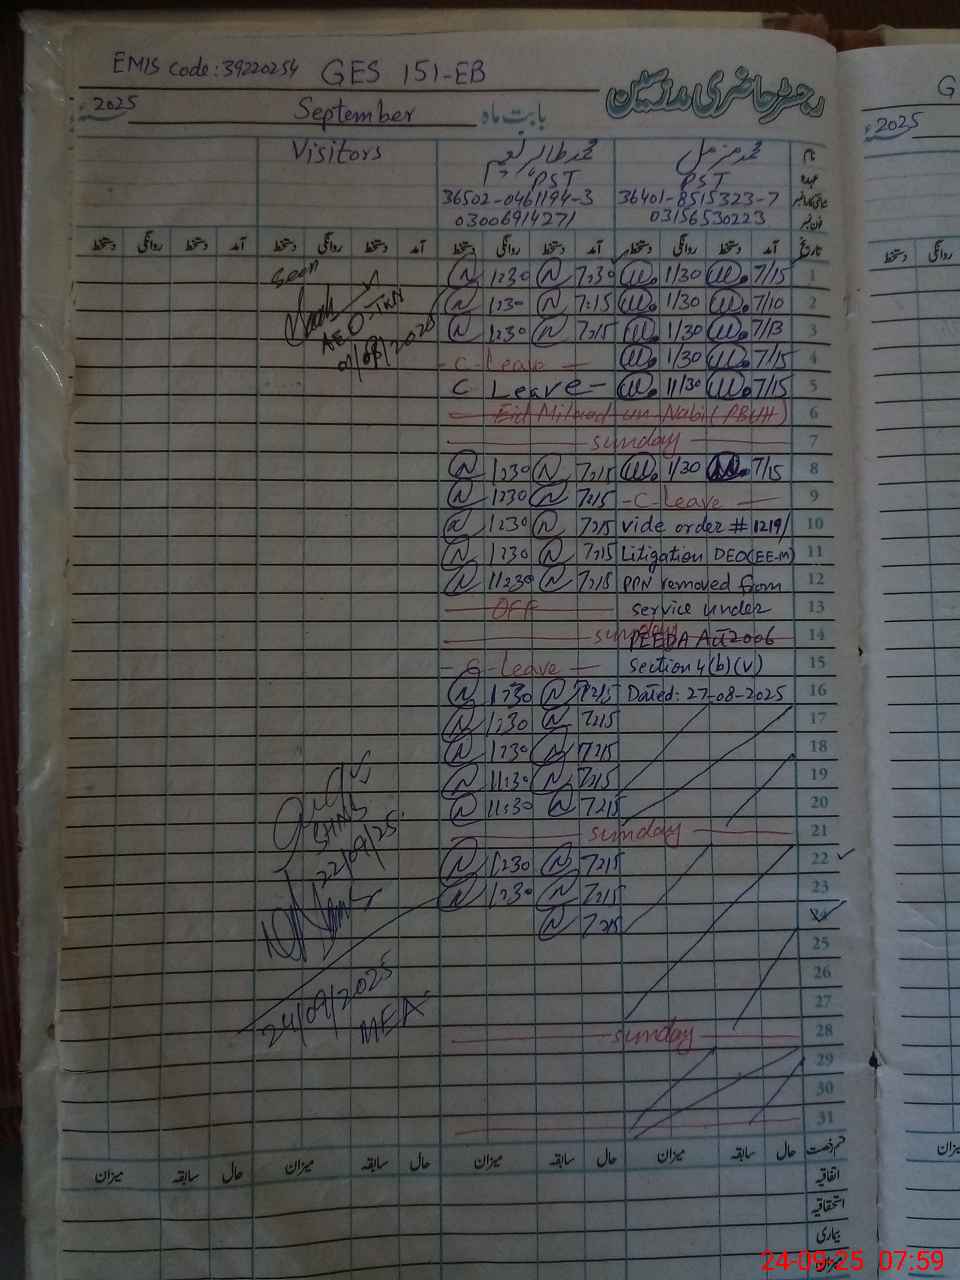 EMIS Code: 39220254 GES 151-EB
رجسٹر حاضری مدرسین
2025 September بابت ماہ
Visitors محمد طاہر نعیم محمد مزمل نام
PST PST عہدہ
36502-0461194-3 36401-8515323-7
03006914271 03156530223 فون نمبر
دستخط روانگی دستخط آمد دستخط روانگی دستخط آمد دستخط روانگی دستخط آمد دستخط روانگی دستخط آمد تاریخ
Seen 1230 7:30 1/30 7/15 1
1230 7:15 1/30 7/10 2
AEO-TKN 1230 7:15 1/30 7/13 3
C-Leave 1/30 7/15 4
C Leave 11/30 7/15 5
Eid Milaad un Nabi (PBUH) 6
sunday 7
1230 7:15 1/30 7/15 8
1230 7:15 C-Leave 9
1230 7:15 vide order # 1219/ 10
1230 7:15 Litigation DEO(EE-M) 11
11230 7:15 PPN removed from 12
OFF service under 13
sunday PEEDA Act 2006 14
C-leave Section 4(b)(v) 15
1:30 7:15 Dated: 27-08-2025 16
1:30 7:15 17
1230 7:15 18
11:30 7:15 19
11:30 7:15 20
22/09/25 sunday 21
1230 7:15 22
1230 7:15 23
7:15 24
25
26
24/09/2025 27
MEA sunday 28
29
30
31
میزان سابقہ حال میزان سابقہ حال میزان سابقہ حال میزان سابقہ حال قسم رخصت
اتفاقیہ
استحقاقیہ
بیماری
میزان
G
2025
دستخط روانگی
24-09-25 07:59